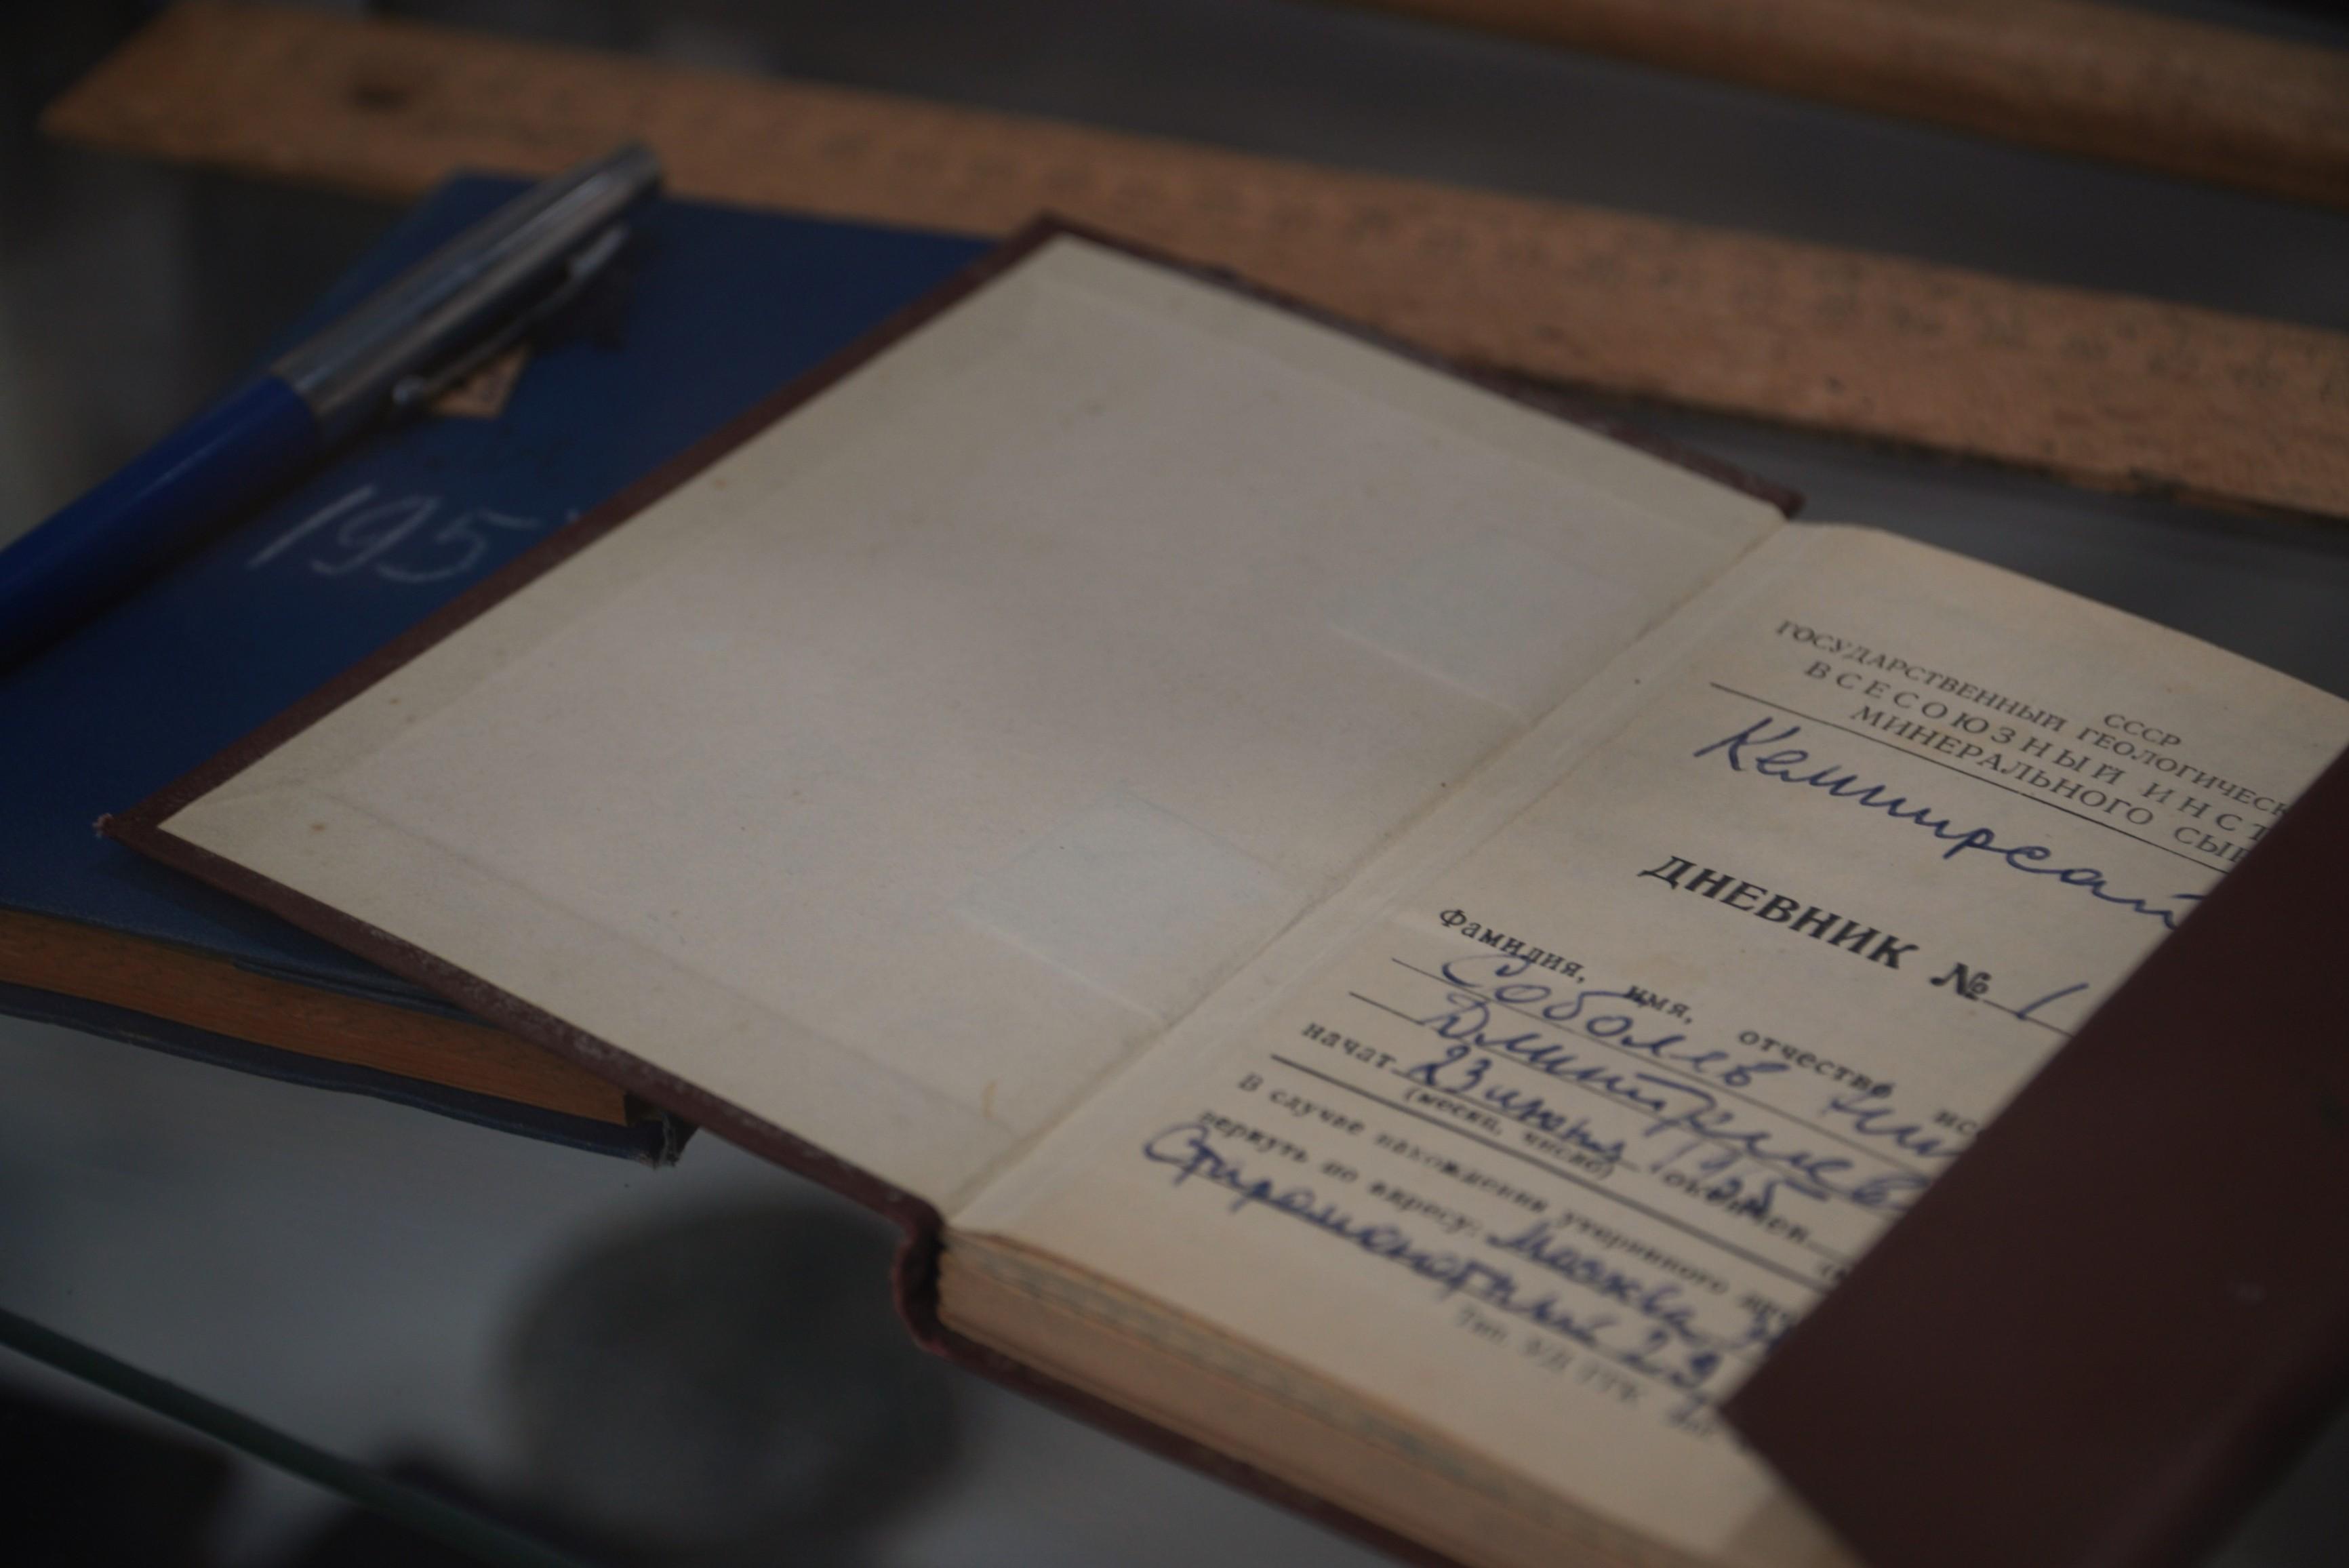 195
СССР
ГОСУДАРСТВЕННЫЙ ГЕОЛОГИЧЕСК
ВСЕСОЮЗНЫЙ ИНСТ
МИНЕРАЛЬНОГО СЫР
Кемпирсай
ДНЕВНИК № 1
Фамилия, имя, отчество ис
Соболев Ни
Дмитриев
начат 23 июня окончен
(месяц, число)
В случае нахождения утерянного
вернуть по адресу: Москва
29